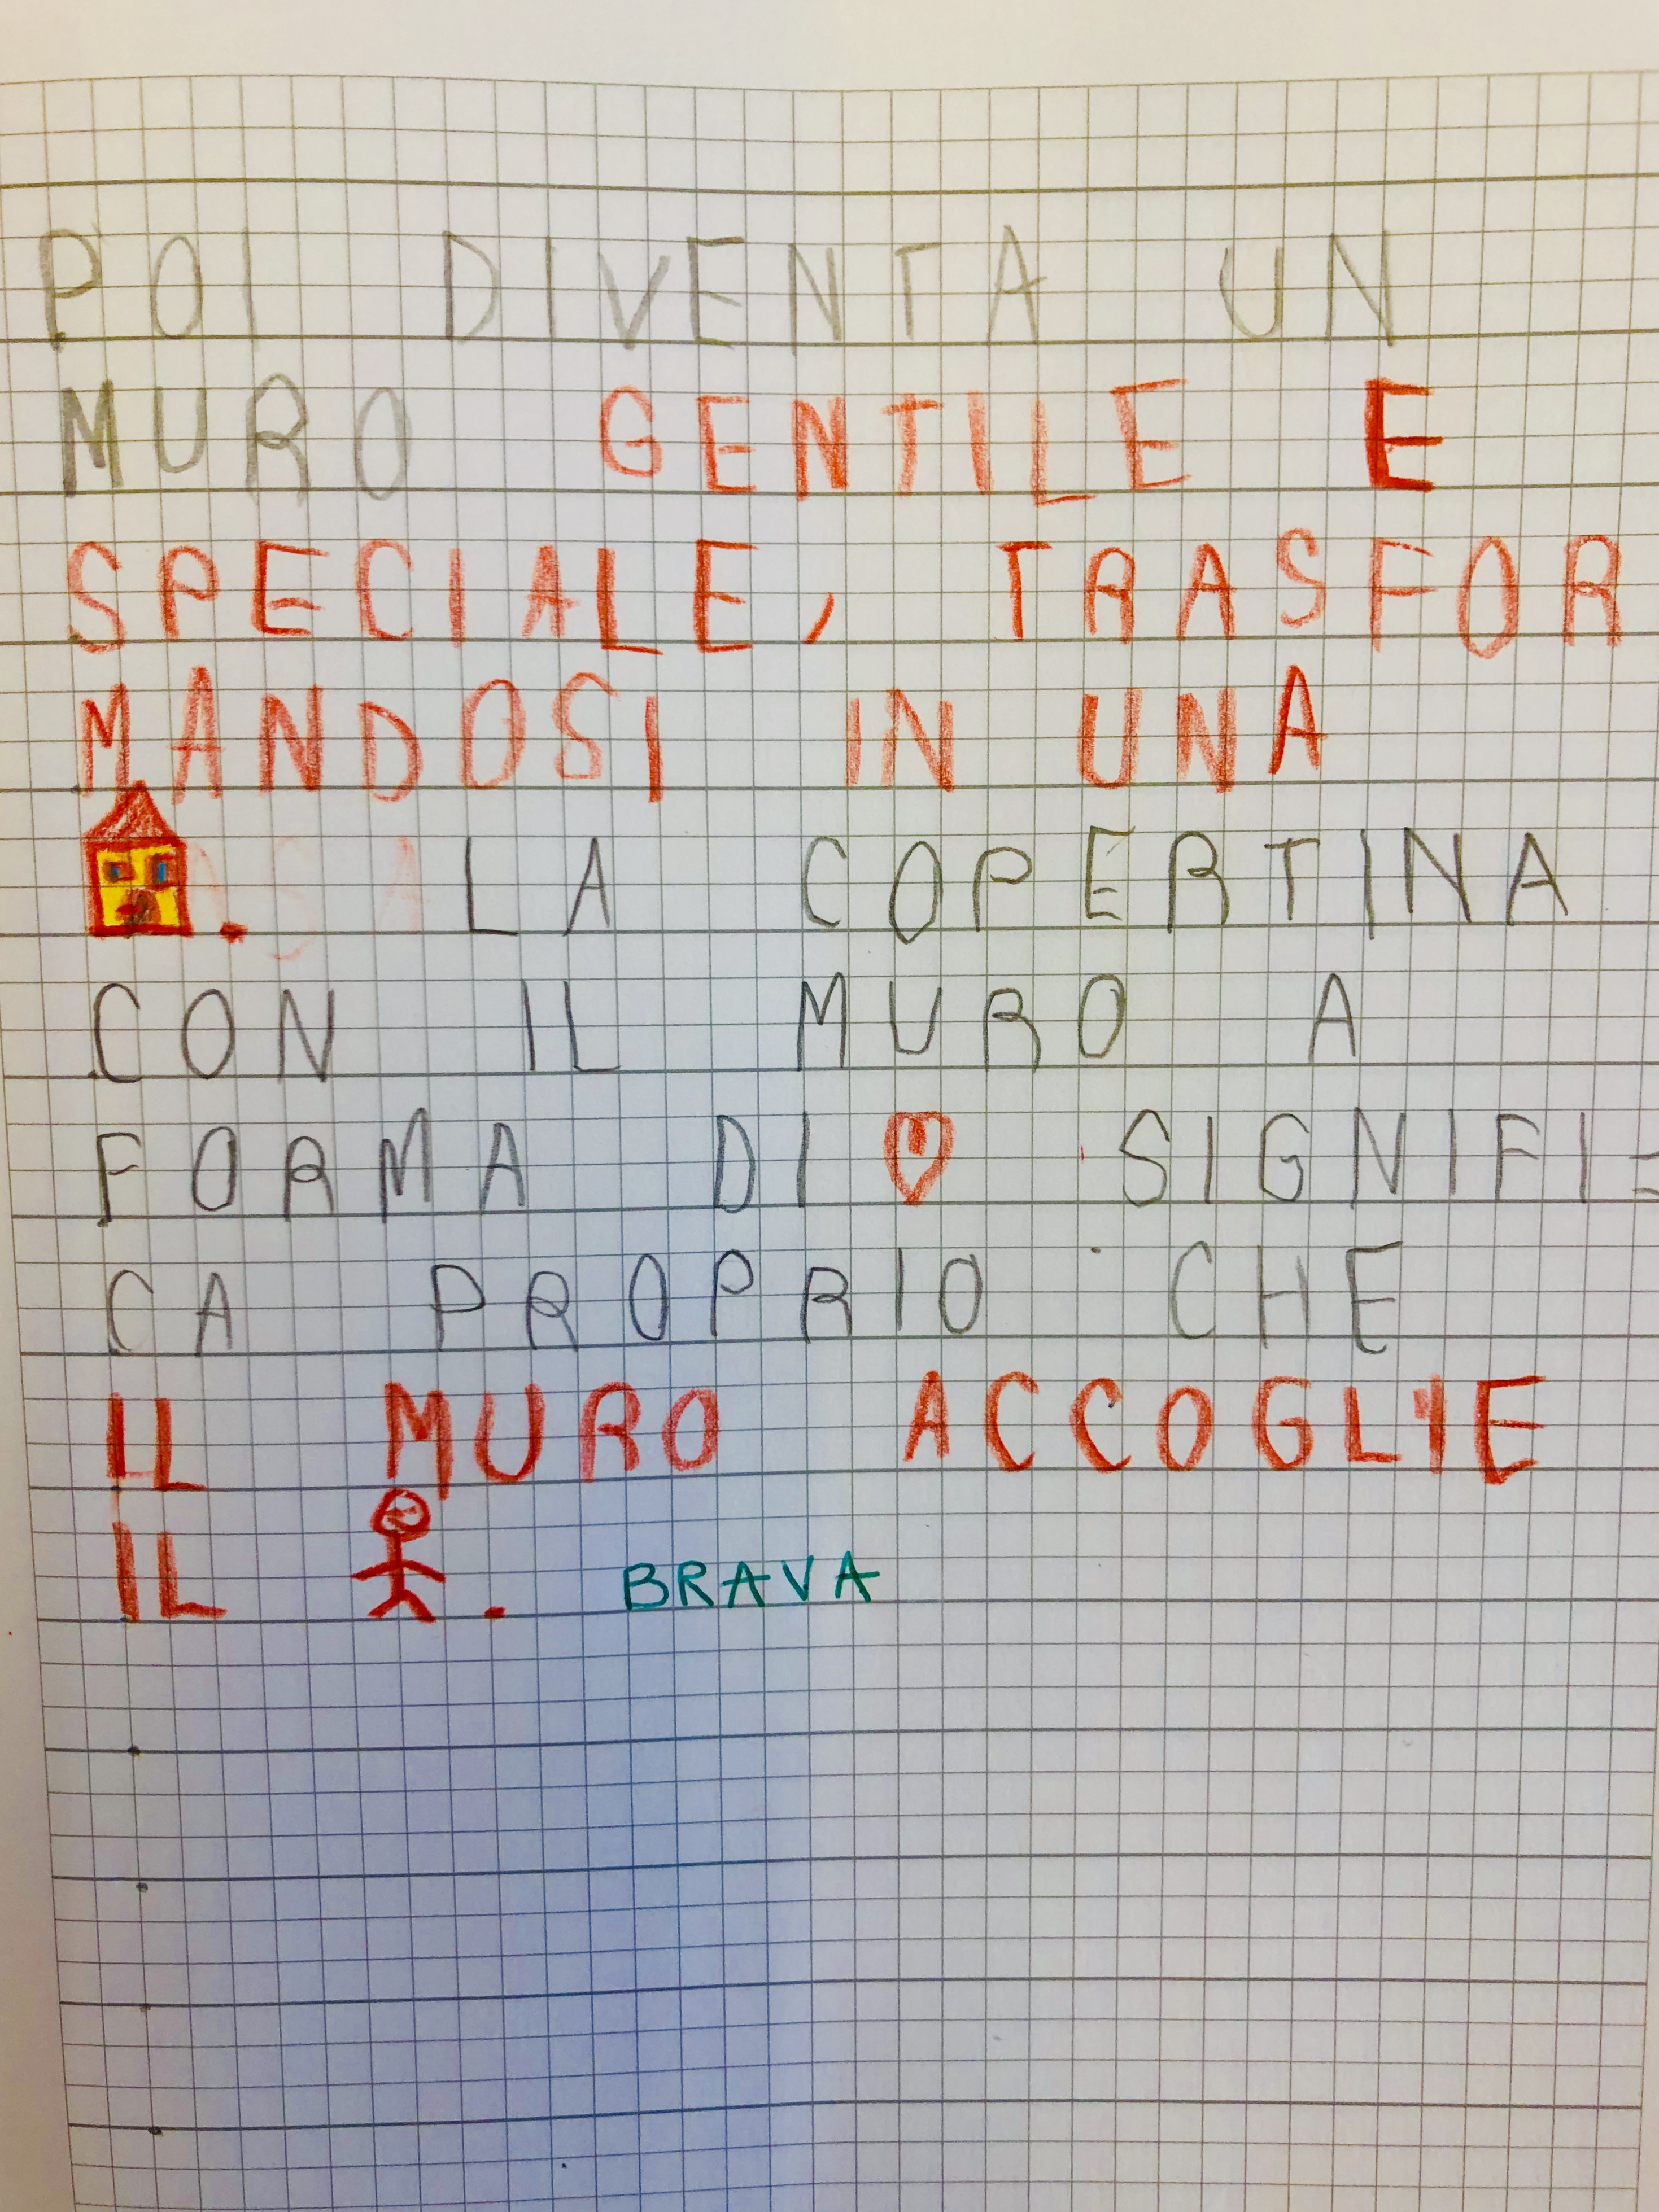 POI DIVENTA UN
MURO GENTILE E
SPECIALE, TRASFOR
MANDOSI IN UNA
. LA COPERTINA
CON IL MURO A
FORMA DI SIGNIFI=
CA PROPRIO CHE
IL MURO ACCOGLIE
IL . BRAVA